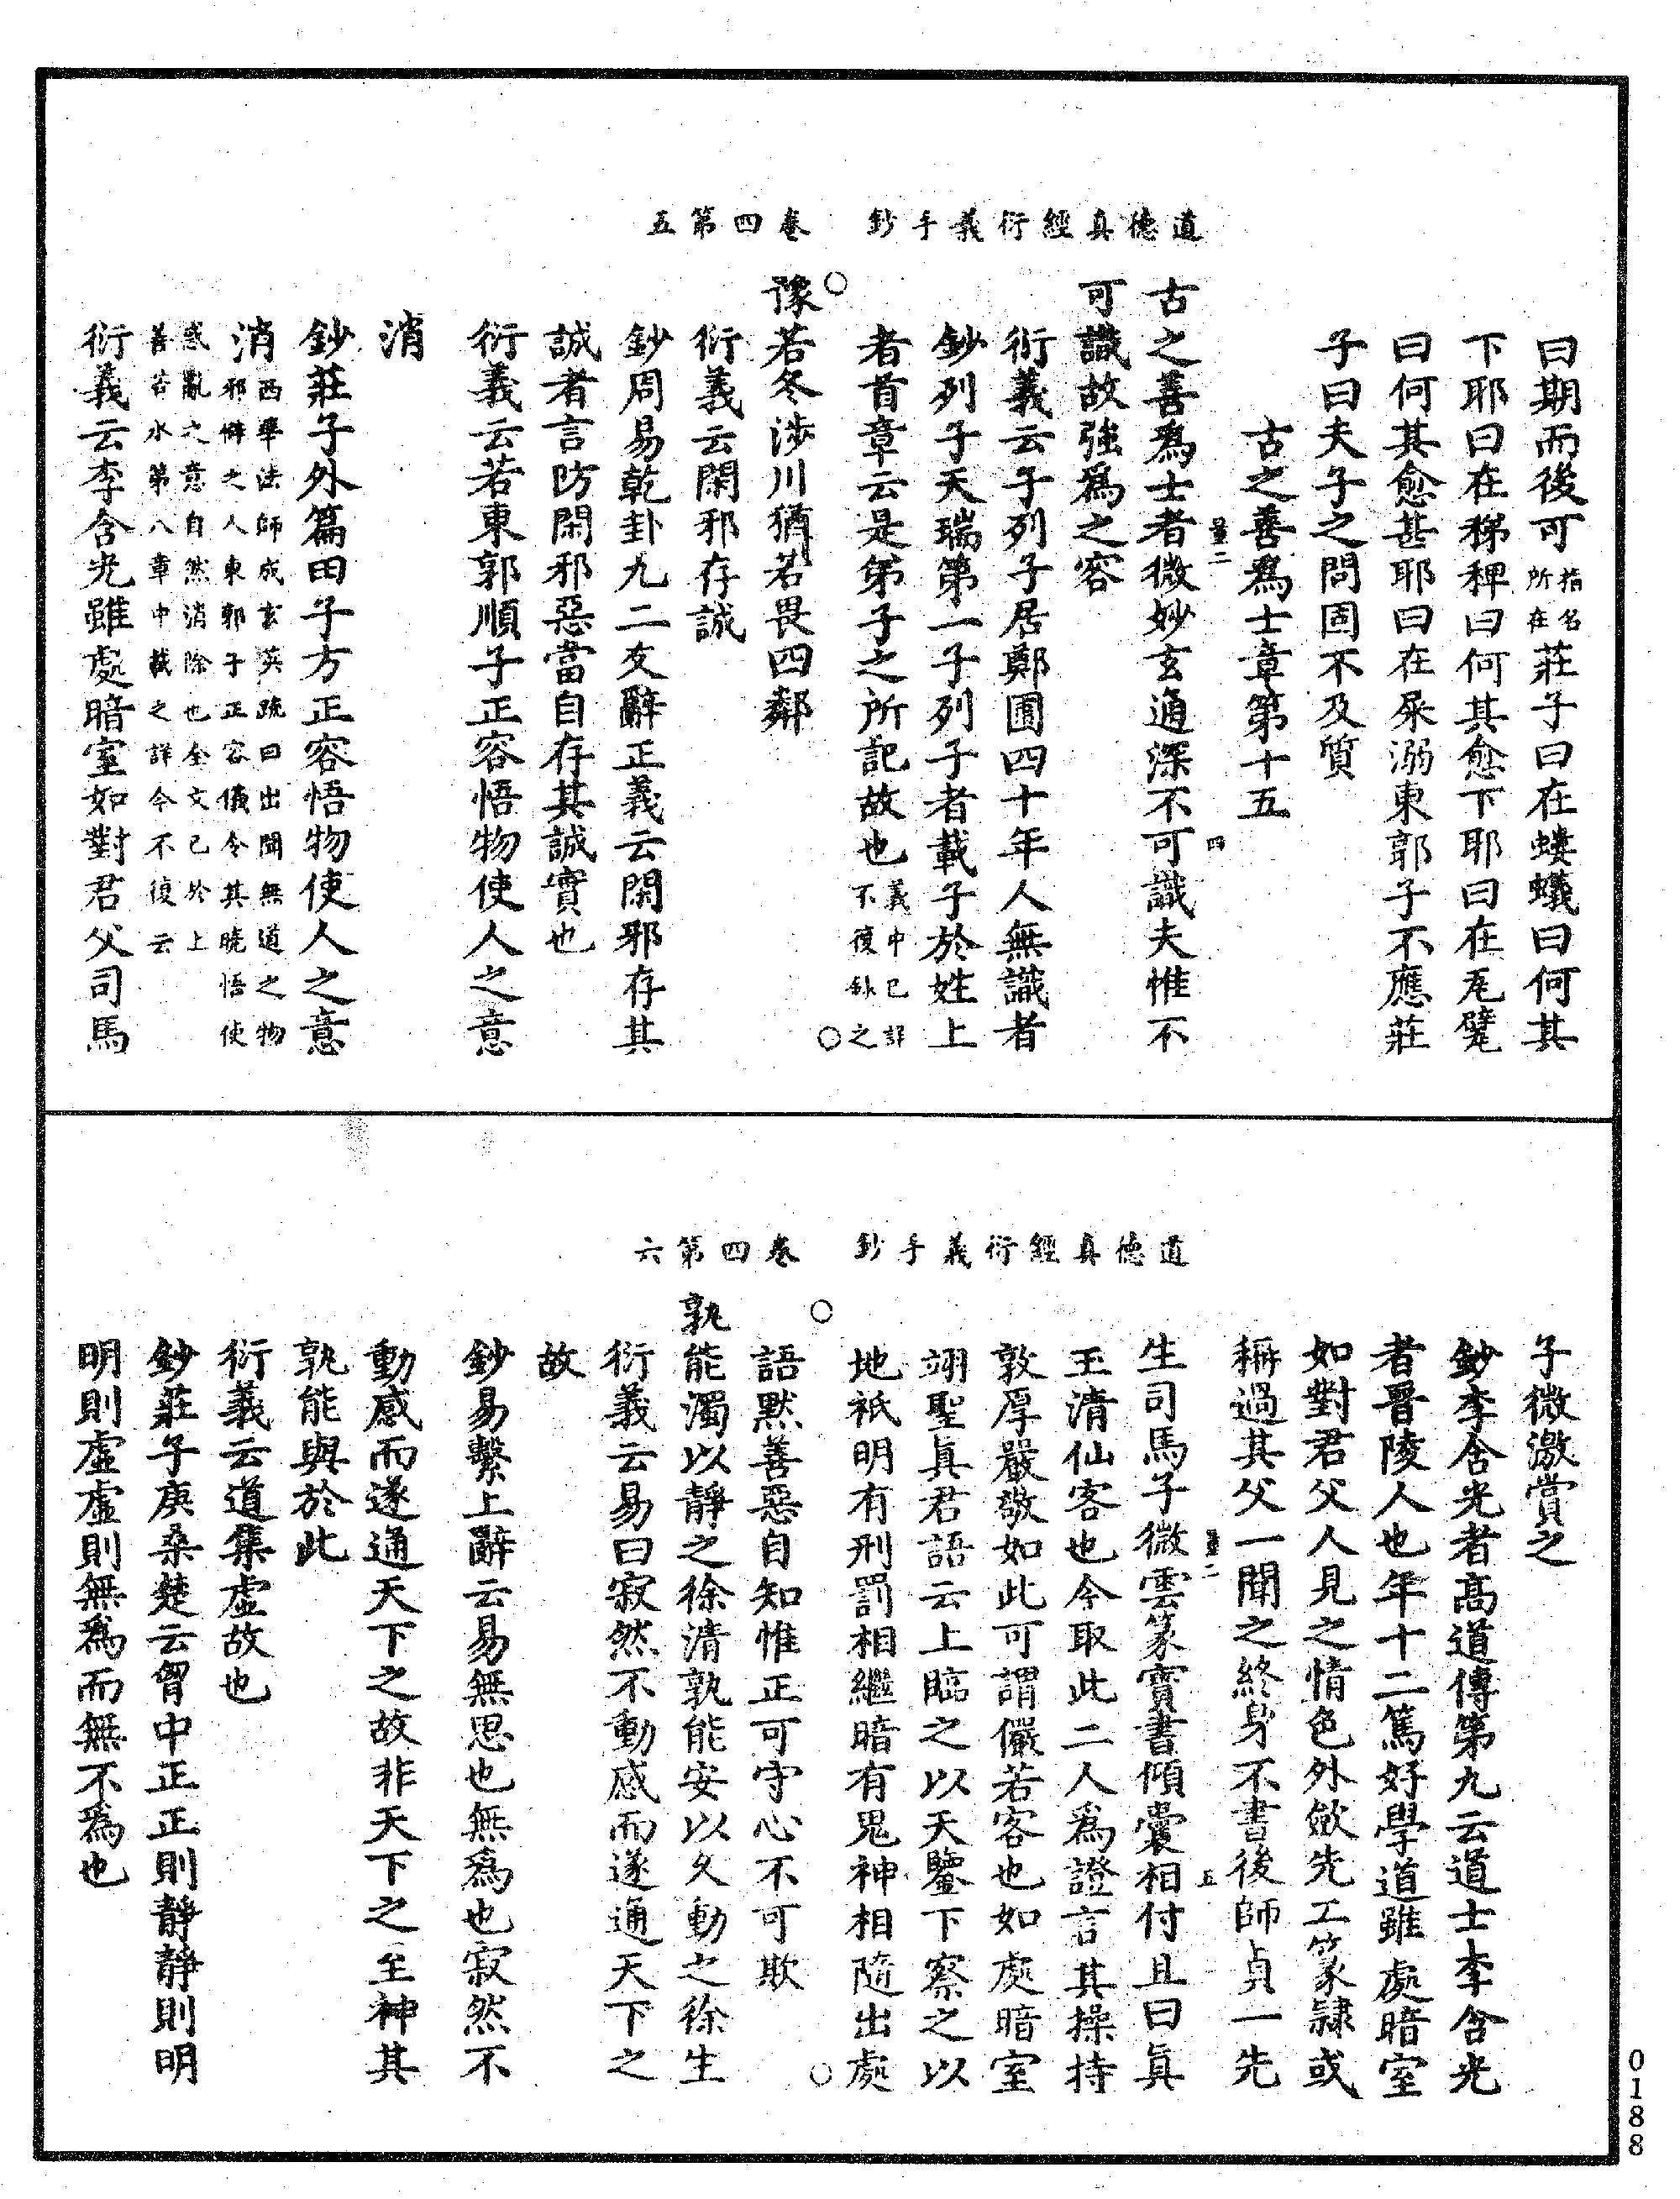 道德真經衍義手鈔　卷四第五
曰期而後可指名所在莊子曰在螻蟻曰何其
下耶曰在稊稗曰何其愈下耶曰在瓦甓
曰何其愈甚耶曰在屎溺東郭子不應莊
子曰夫子之問固不及質
古之善爲士章第十五
量二　四
古之善爲士者微妙玄通深不可識夫惟不
可識故強爲之容
衍義云子列子居鄭圃四十年人無識者
鈔列子天瑞第一子列子者載子於姓上
者首章云是弟子之所記故也義中已詳不復鈔之
○　○
豫若冬涉川猶若畏四鄰
衍義云閑邪存誠
鈔周易乾卦九二爻辭正義云閑邪存其
誠者言防閑邪惡當自存其誠實也
衍義云若東郭順子正容悟物使人之意
消
鈔莊子外篇田子方正容悟物使人之意
消西華法師成玄英疏曰出聞無道之物邪僻之人東郭子正容儀令其曉悟使
惑亂之意自然消除也全文已於上善若水第八章中載之詳今不復云
衍義云李含光雖處暗室如對君父司馬
道德真經衍義手鈔　卷四第六
子微激賞之
鈔李含光者高道傳第九云道士李含光
者晋陵人也年十二篤好學道雖處暗室
如對君父人見之情色外斂先工篆隷或
稱過其父一聞之終身不書後師貞一先
量二　五
生司馬子微雲篆寶書傾囊相付且曰眞
王清仙客也今取此二人爲證言其操持
敦厚嚴敬如此可謂儼若客也如處暗室
翊聖眞君語云上臨之以天鑒下察之以
地祇明有刑罰相繼暗有鬼神相隨出處
○　○
語默善惡自知惟正可守心不可欺
孰能濁以靜之徐清孰能安以久動之徐生
衍義云易曰寂然不動感而遂通天下之
故
鈔易繫上辭云易無思也無爲也寂然不
動感而遂通天下之故非天下之至神其
孰能與於此
衍義云道集虛故也
鈔莊子庚桑楚云胷中正正則靜靜則明
明則虛虛則無爲而無不爲也
0188